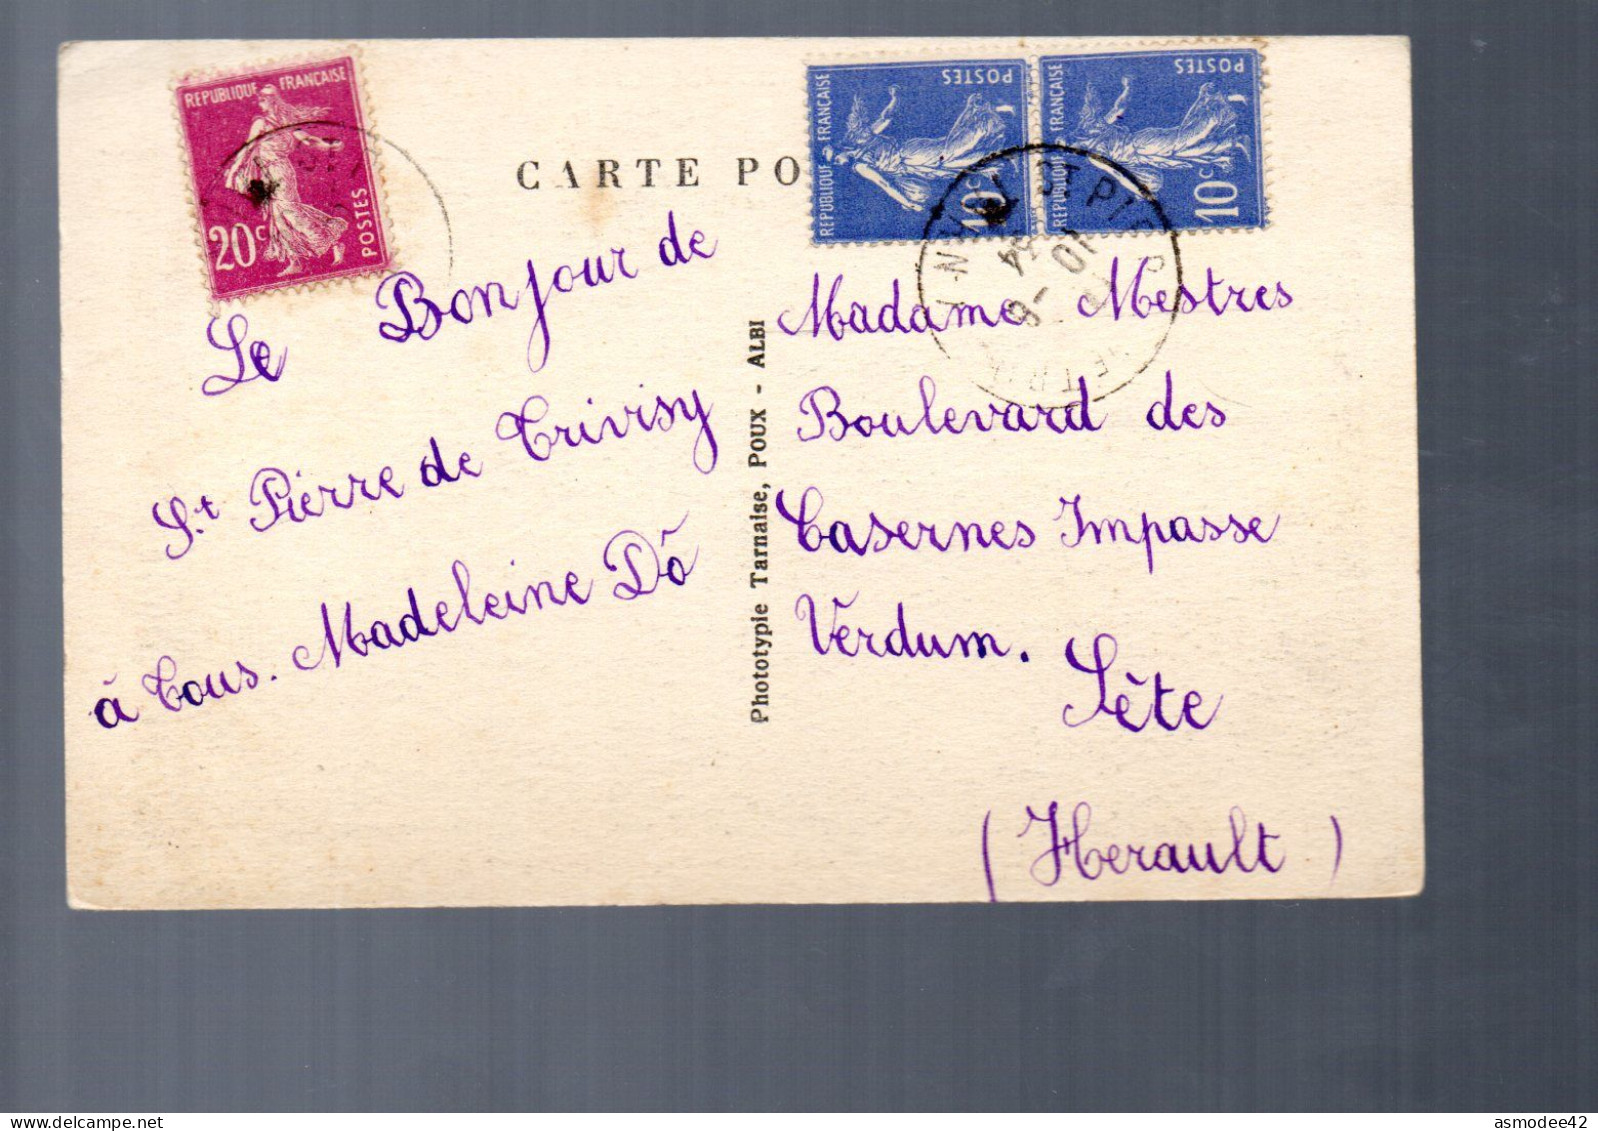 REPUBLIQUE FRANÇAISE
20c
POSTES
CARTE PO
REPUBLIQUE FRANÇAISE
POSTES
10c
REPUBLIQUE FRANÇAISE
POSTES
10c
ST PIERRE
Le Bonjour de
St Pierre de Trivisy
à Tous. Madeleine Dô
Phototypie Tarnaise, POUX - ALBI
Madame Mestres
Boulevard des
Casernes Impasse
Verdum.
Sète
(Herault)
asmodee42